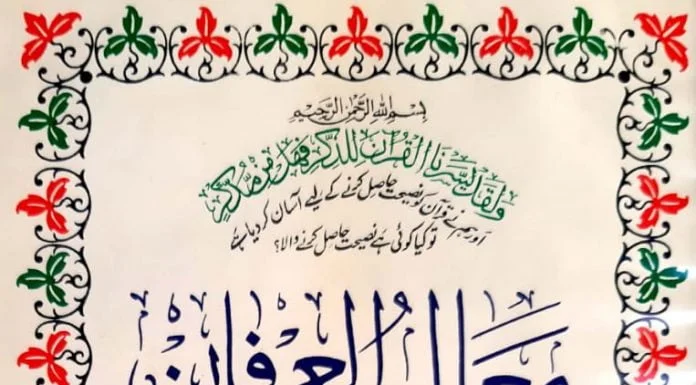 بِسْمِ اللهِ الرَّحْمٰنِ الرَّحِيْمِ
وَلَقَدْ يَسَّرْنَا الْقُرْآنَ لِلذِّكْرِ فَهَلْ مِنْ مُّدَّكِرٍ
اور ہم نے قرآن کو نصیحت حاصل کرنے کے لیے آسان کر دیا ہے
تو کیا کوئی ہے نصیحت حاصل کرنے والا؟
معالم العرفان